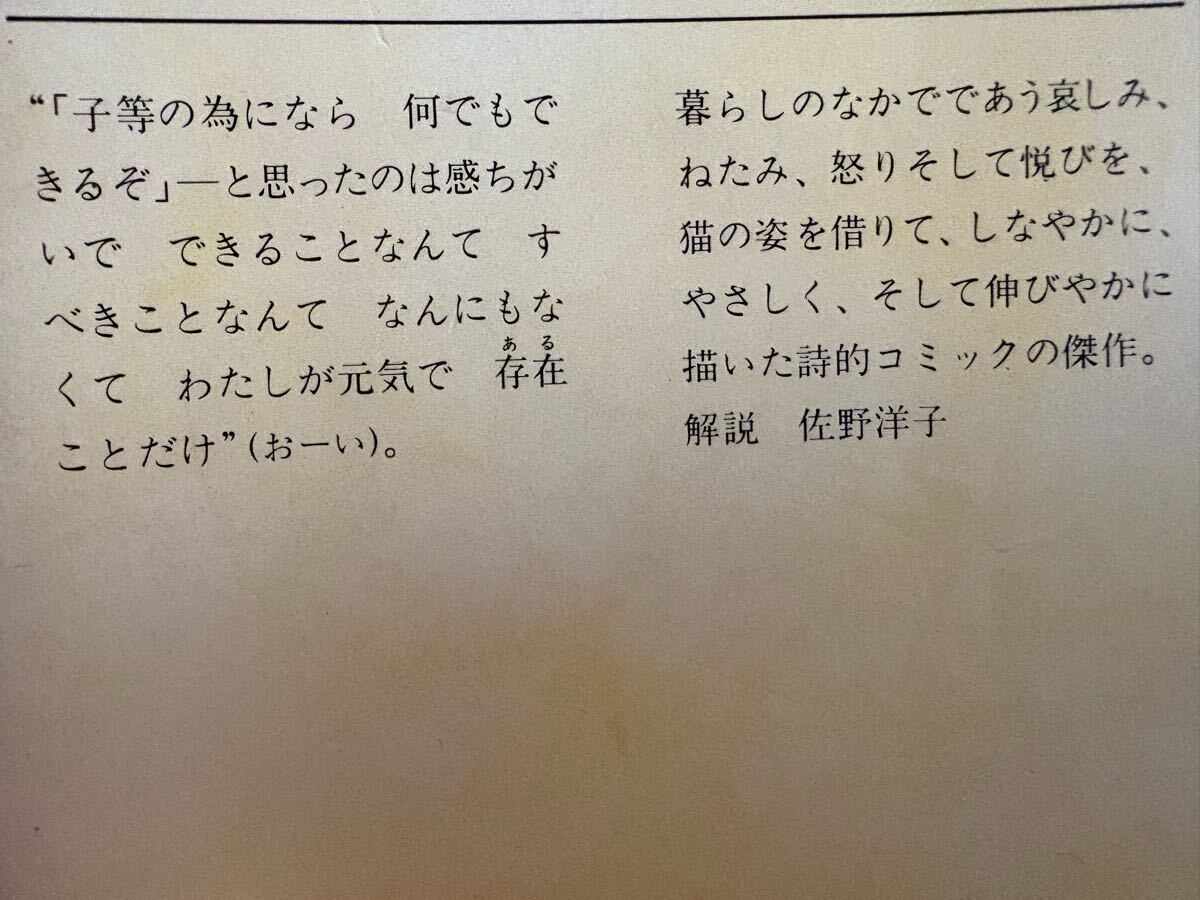 “「子等の為になら　何でもで
きるぞ」―と思ったのは感ちが
いで　できることなんて　す
べきことなんて　なんにもな
くて　わたしが元気で　存在
ある
ことだけ”(おーい)。
暮らしのなかでであう哀しみ、
ねたみ、怒りそして悦びを、
猫の姿を借りて、しなやかに、
やさしく、そして伸びやかに
描いた詩的コミックの傑作。
解説　佐野洋子